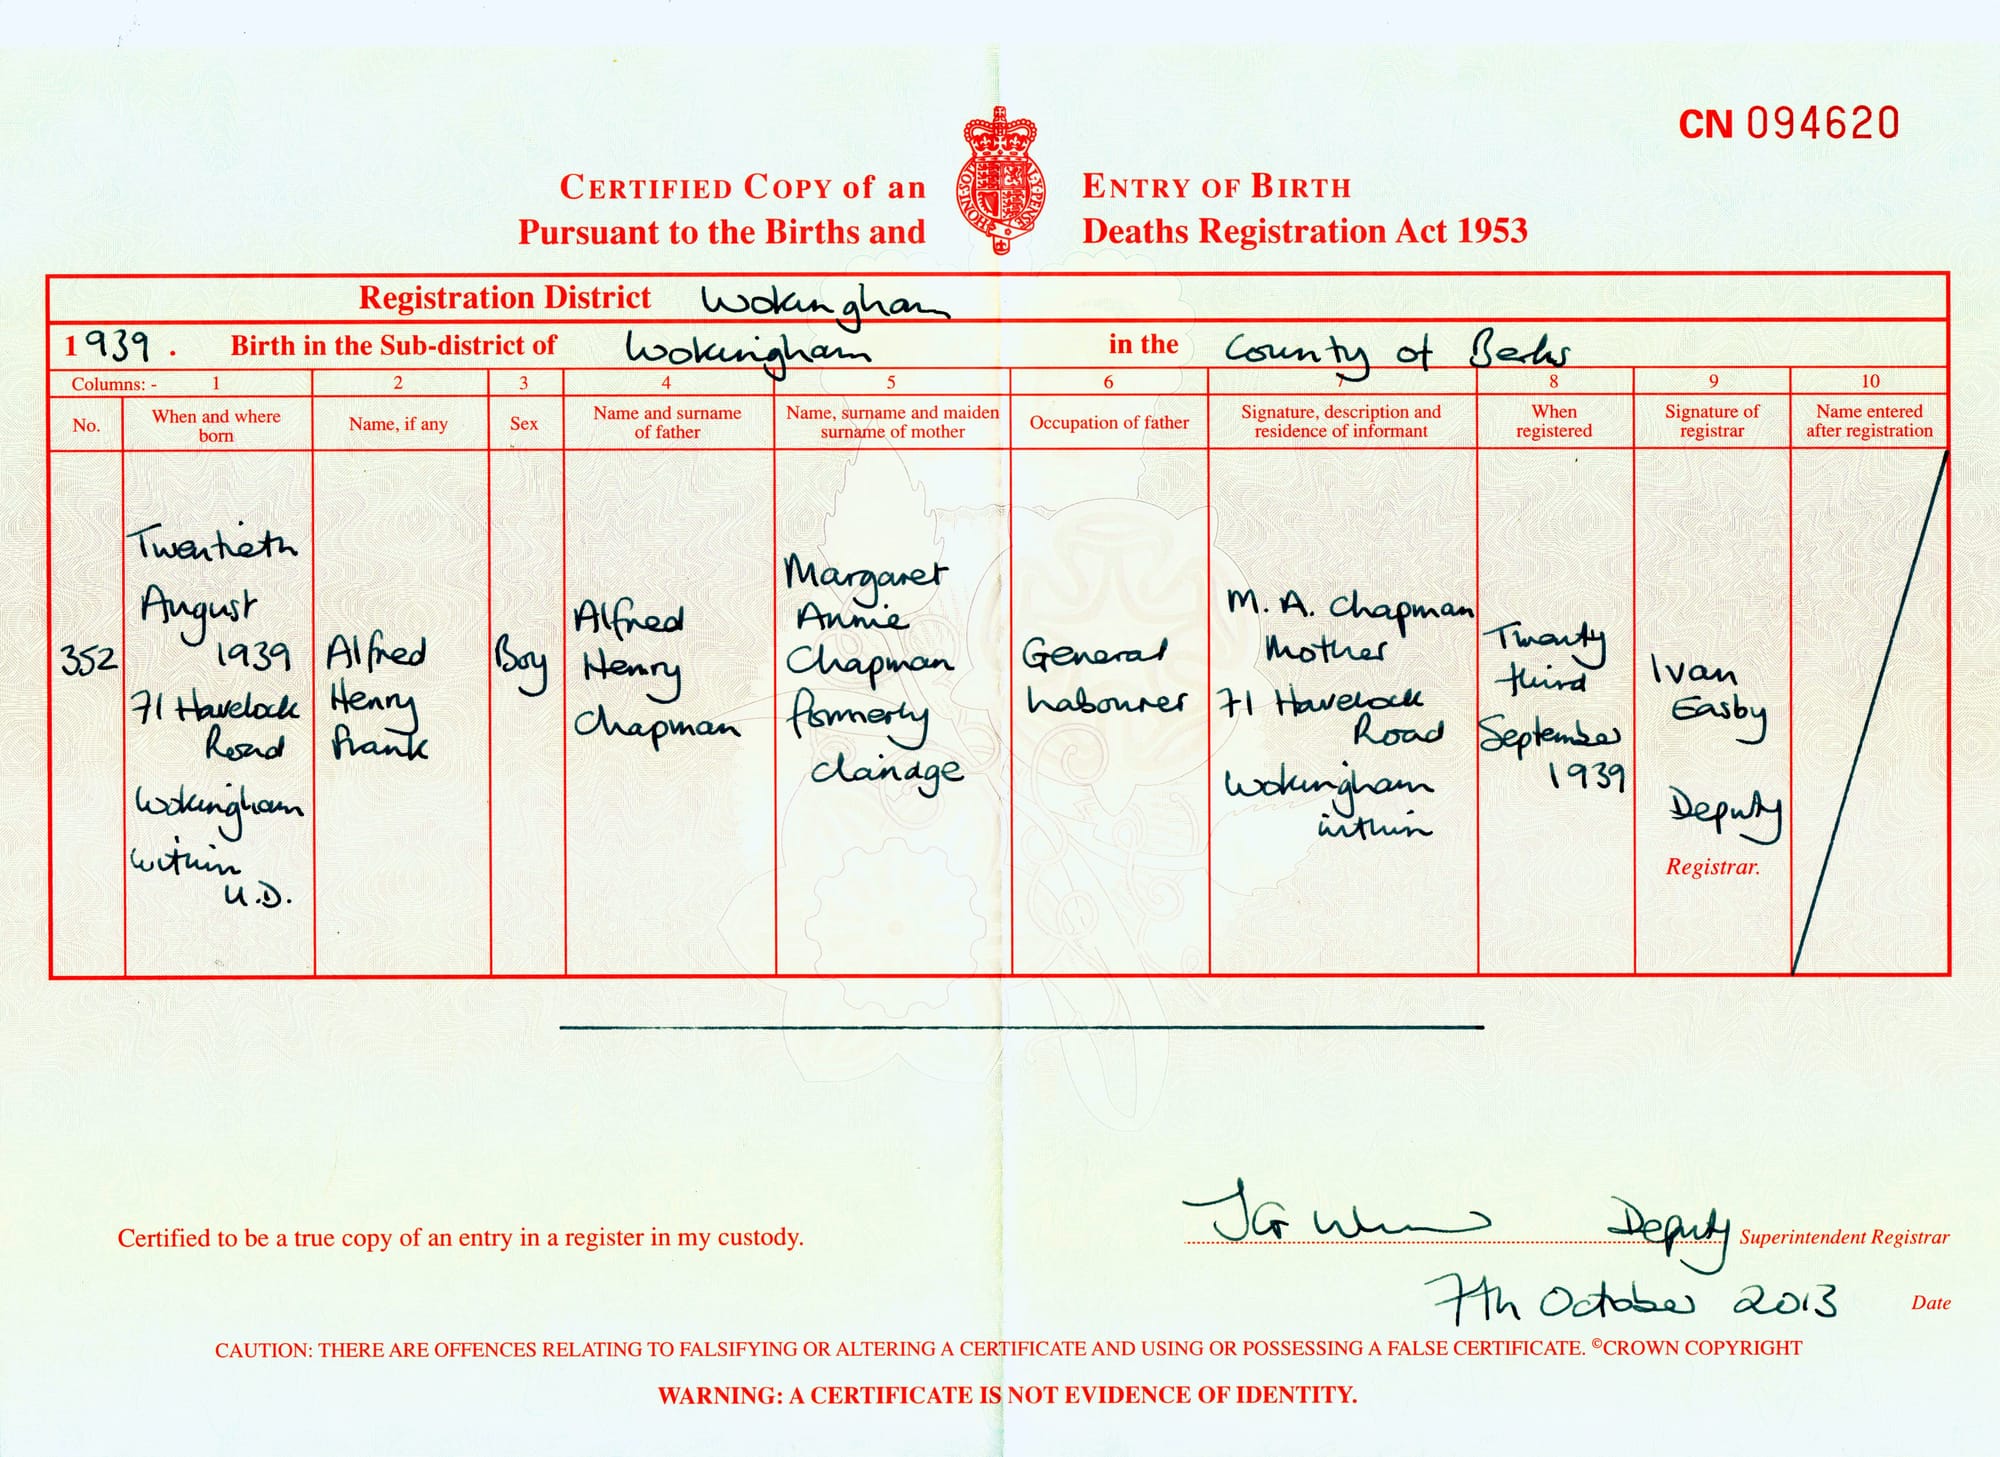 CN 094620
CERTIFIED COPY of an ENTRY OF BIRTH
Pursuant to the Births and Deaths Registration Act 1953
HONI·SOIT
MAL·Y·PENSE
Registration District Wokingham
1939. Birth in the Sub-district of Wokingham in the County of Berks
Columns: - 1 2 3 4 5 6 7 8 9 10
No.
When and where
born
Name, if any
Sex
Name and surname
of father
Name, surname and maiden
surname of mother
Occupation of father
Signature, description and
residence of informant
When
registered
Signature of
registrar
Name entered
after registration
352
Twentieth
August
1939
71 Havelock
Road
Wokingham
within
U.D.
Alfred
Henry
Frank
Boy
Alfred
Henry
Chapman
Margaret
Annie
Chapman
formerly
General
Labourer
M. A. Chapman
Mother
71 Havelock
Road
Wokingham
within
Twenty
third
September
1939
Ivan
Easby
Deputy
Registrar.
Certified to be a true copy of an entry in a register in my custody.
Deputy Superintendent Registrar
7th October 2013 Date
CAUTION: THERE ARE OFFENCES RELATING TO FALSIFYING OR ALTERING A CERTIFICATE AND USING OR POSSESSING A FALSE CERTIFICATE. ©CROWN COPYRIGHT
WARNING: A CERTIFICATE IS NOT EVIDENCE OF IDENTITY.